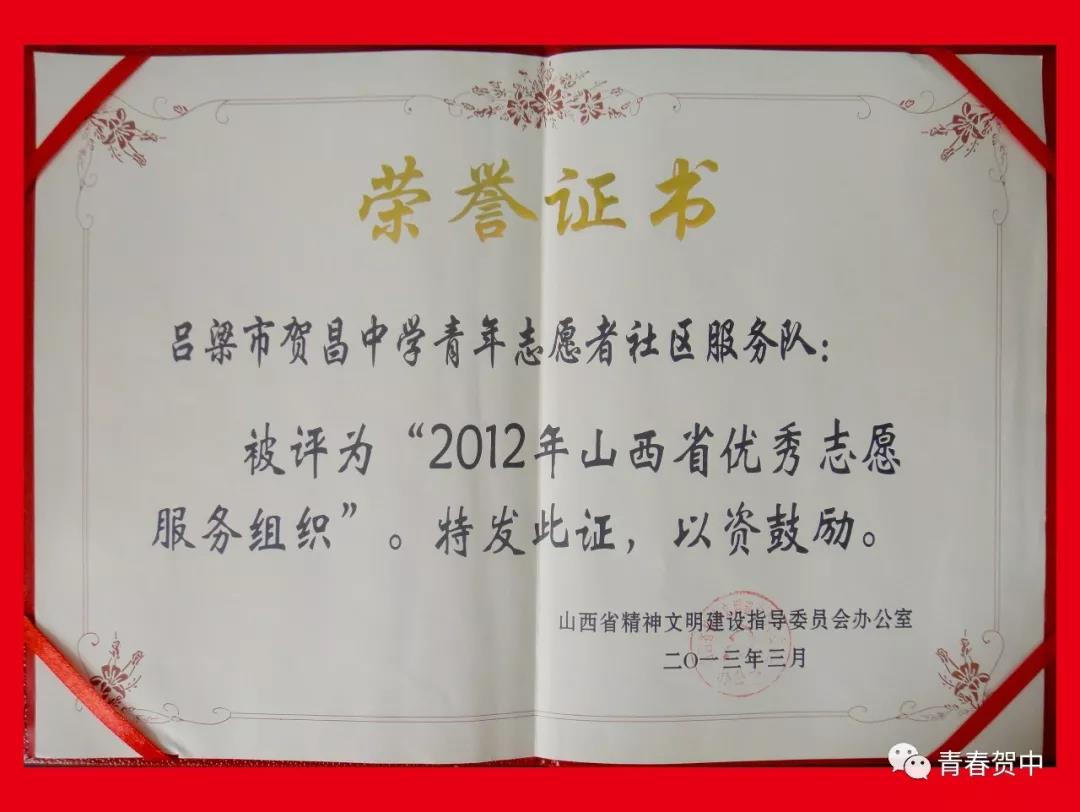 荣誉证书
吕梁市贺昌中学青年志愿者社区服务队：
被评为“2012年山西省优秀志愿
服务组织”。特发此证，以资鼓励。
山西省精神文明建设指导委员会办公室
二〇一三年三月
青春贺中